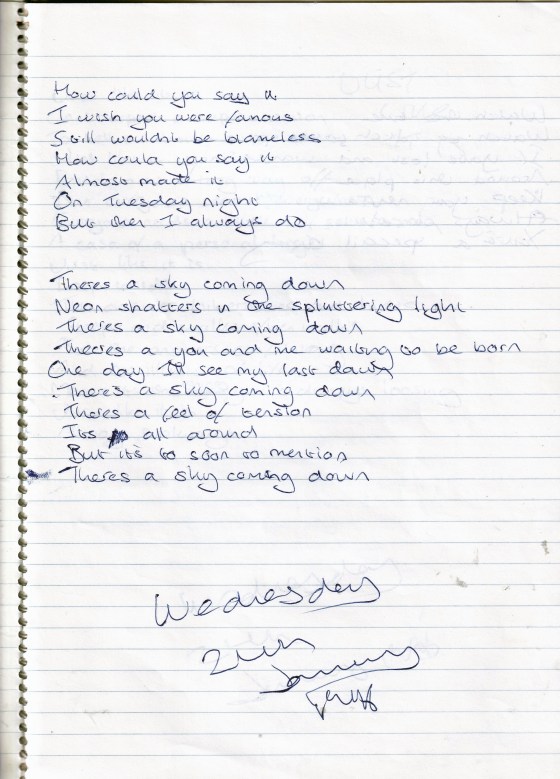 How could you say it
I wish you were famous
Still wouldnt be blameless
How could you say it
Almost made it
On Tuesday night
But then I always do
Theres a sky coming down
Neon shatters in the spluttering light
Theres a sky coming down
Theres a you and me waiting to be born
One day I'll see my last dawn
There's a sky coming down
Theres a feel of tension
Its all around
But it's to soon to mention
Theres a sky coming down
Wednesday
January